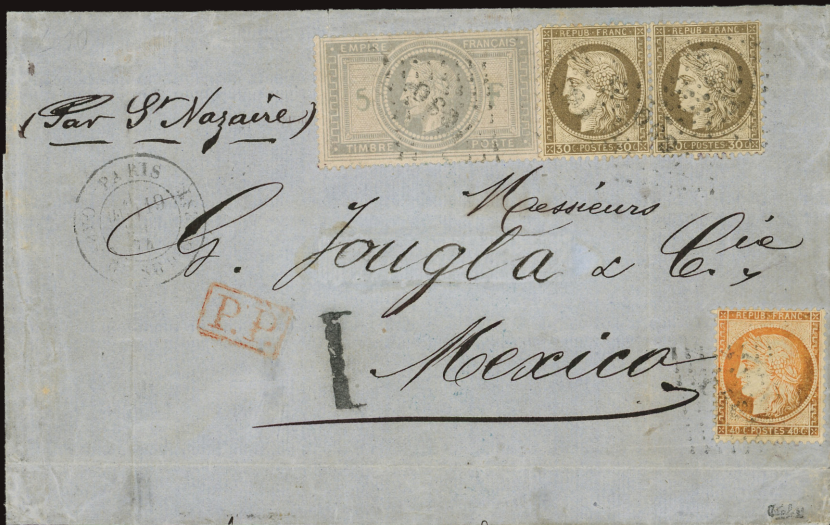 EMPIRE FRANÇAIS
5 F
TIMBRE POSTE
REPUB · FRANC
30 C · POSTES · 30 C
REPUB · FRANC
30 C · POSTES · 30 C
(Par St Nazaire)
PARIS
Messieurs
G. Jougla & Cie
P.P.
Mexico
REPUB · FRANC
40 C · POSTES · 40 C